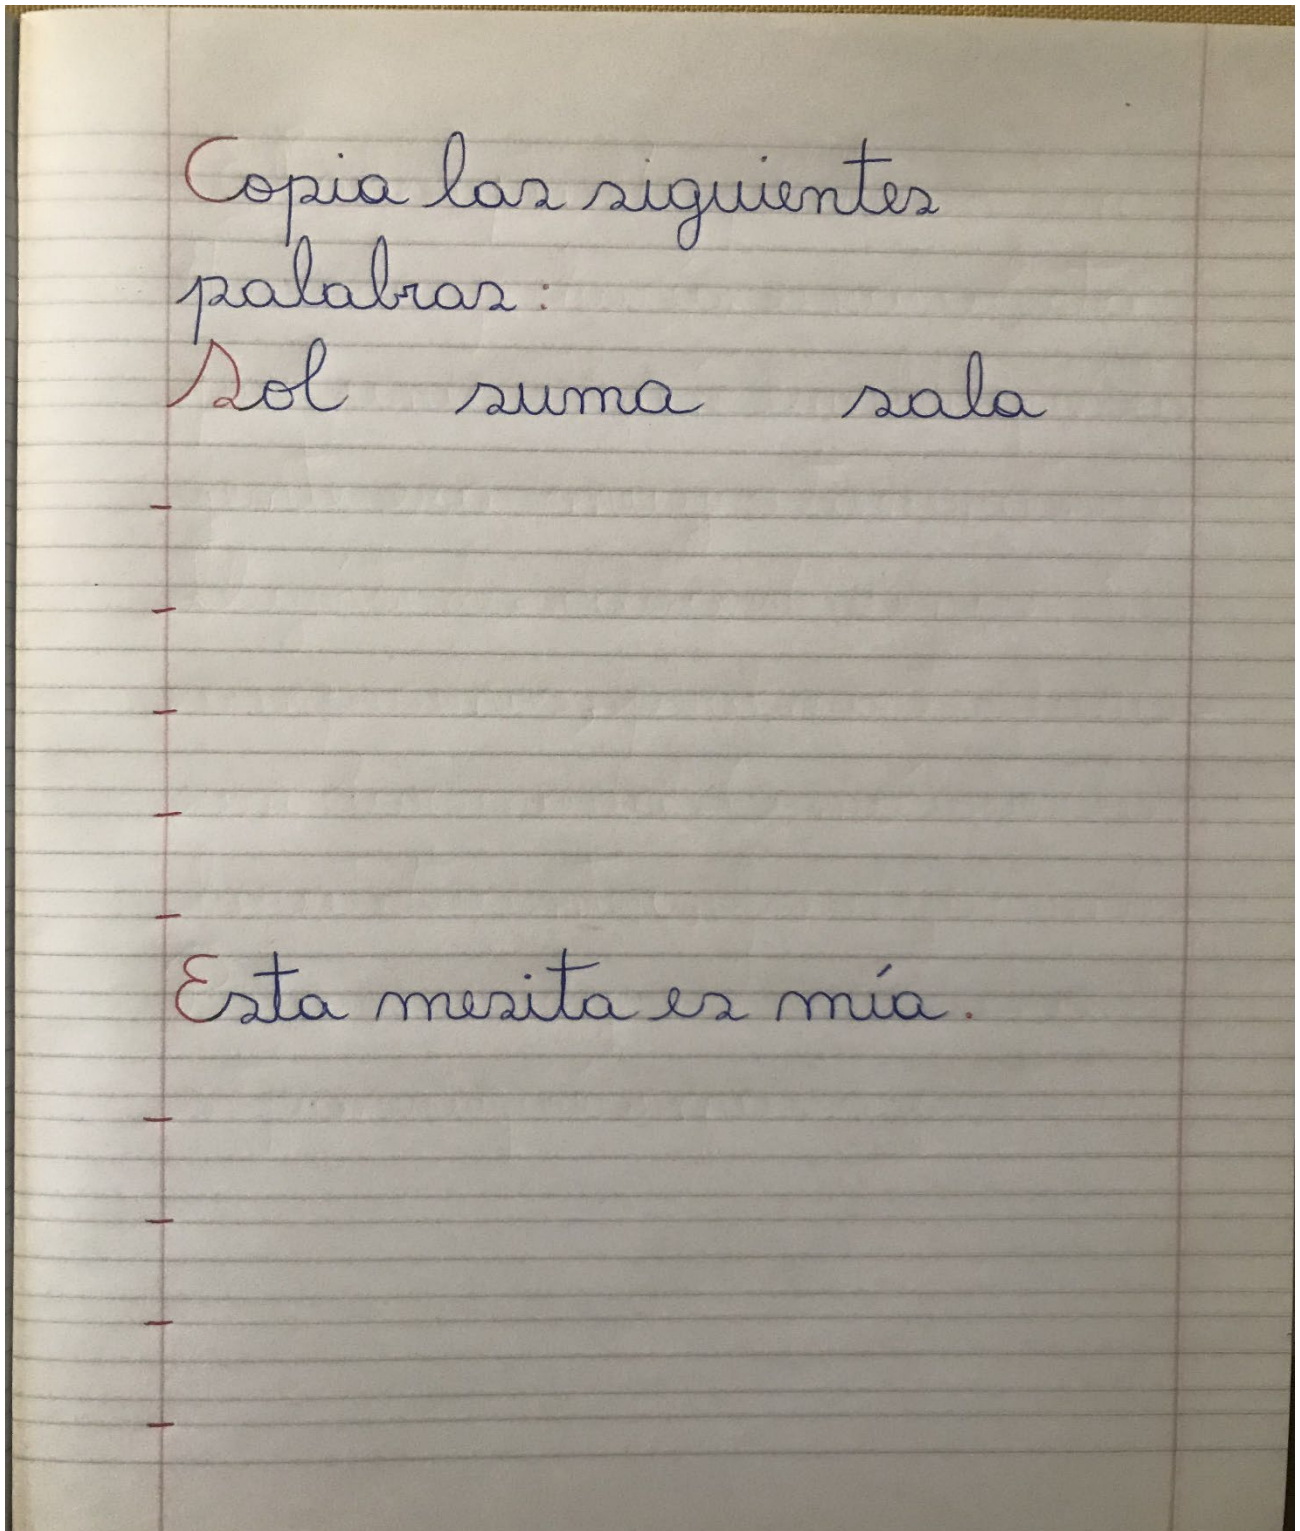 Copia las siguientes
palabras:
Sol suma sala
Esta mesita es mía.